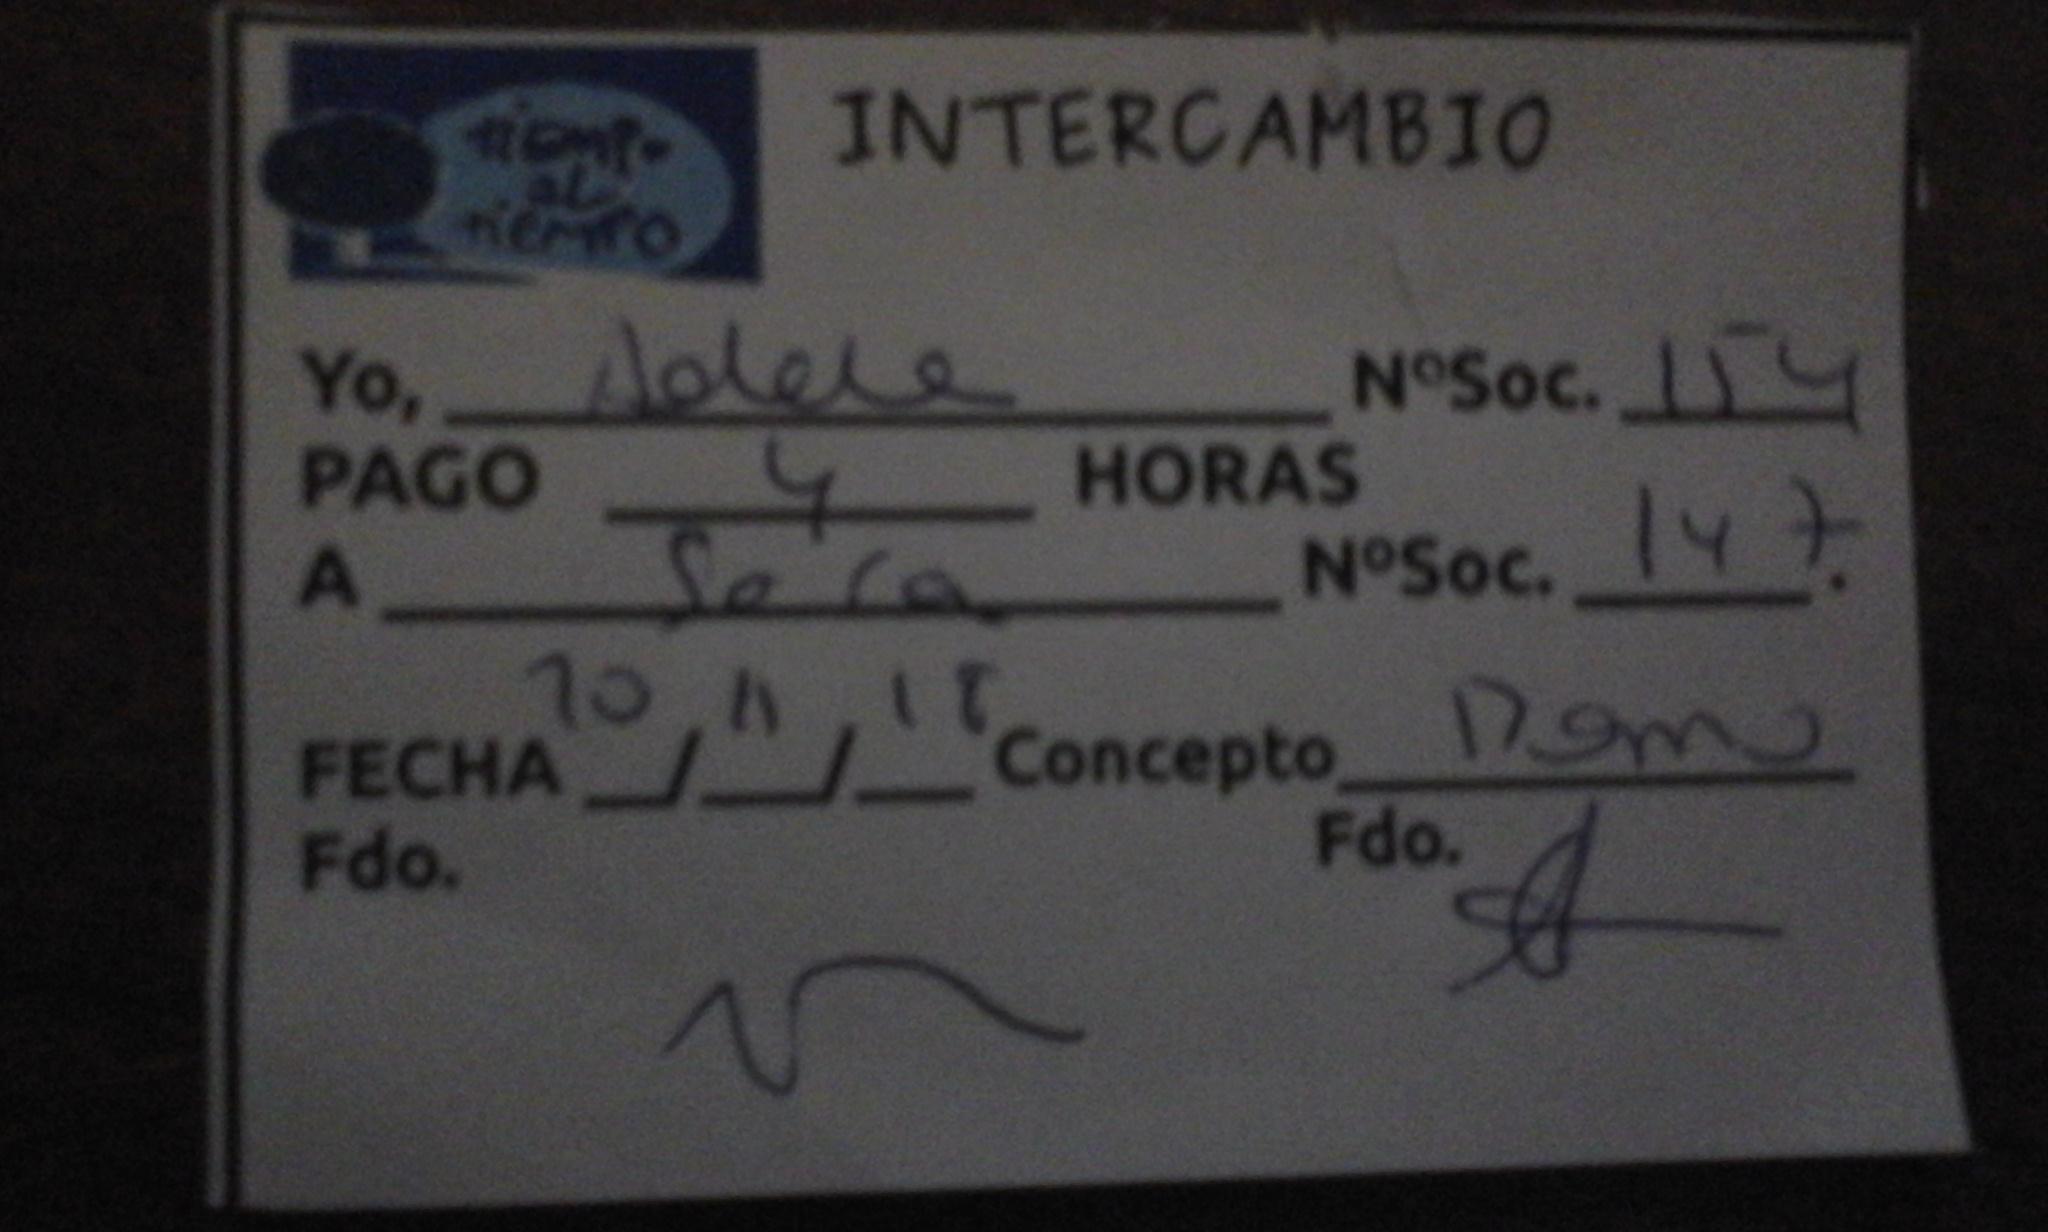 tiempo
al
tiempo
INTERCAMBIO
Yo, Adela NºSoc. 154
PAGO 4 HORAS
A Sara NºSoc. 147.
FECHA 10/11/18 Concepto
Fdo. Fdo.